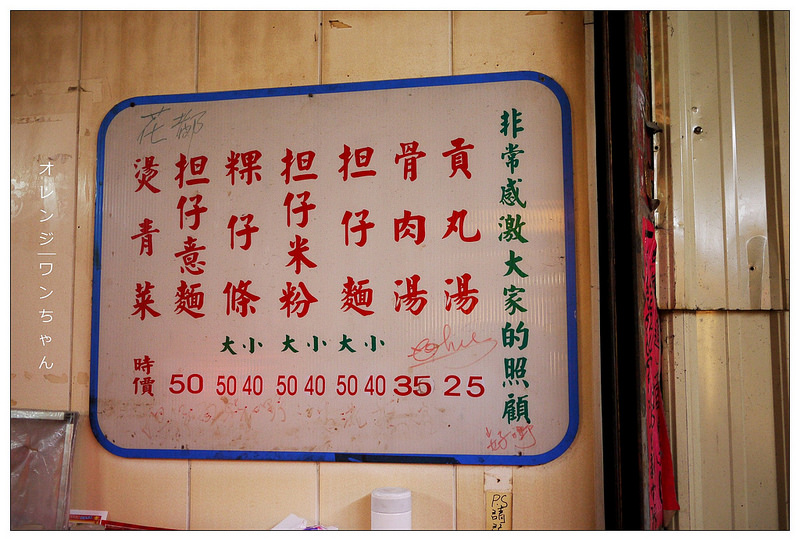 非常感激大家的照顧
貢丸湯 25
骨肉湯 35
担仔麵 大 小 50 40
担仔米粉 大 小 50 40
粿仔條 大 小 50 40
担仔意麵 50
燙青菜 時價
花都
オレンジ|ワンちゃん
PS
請